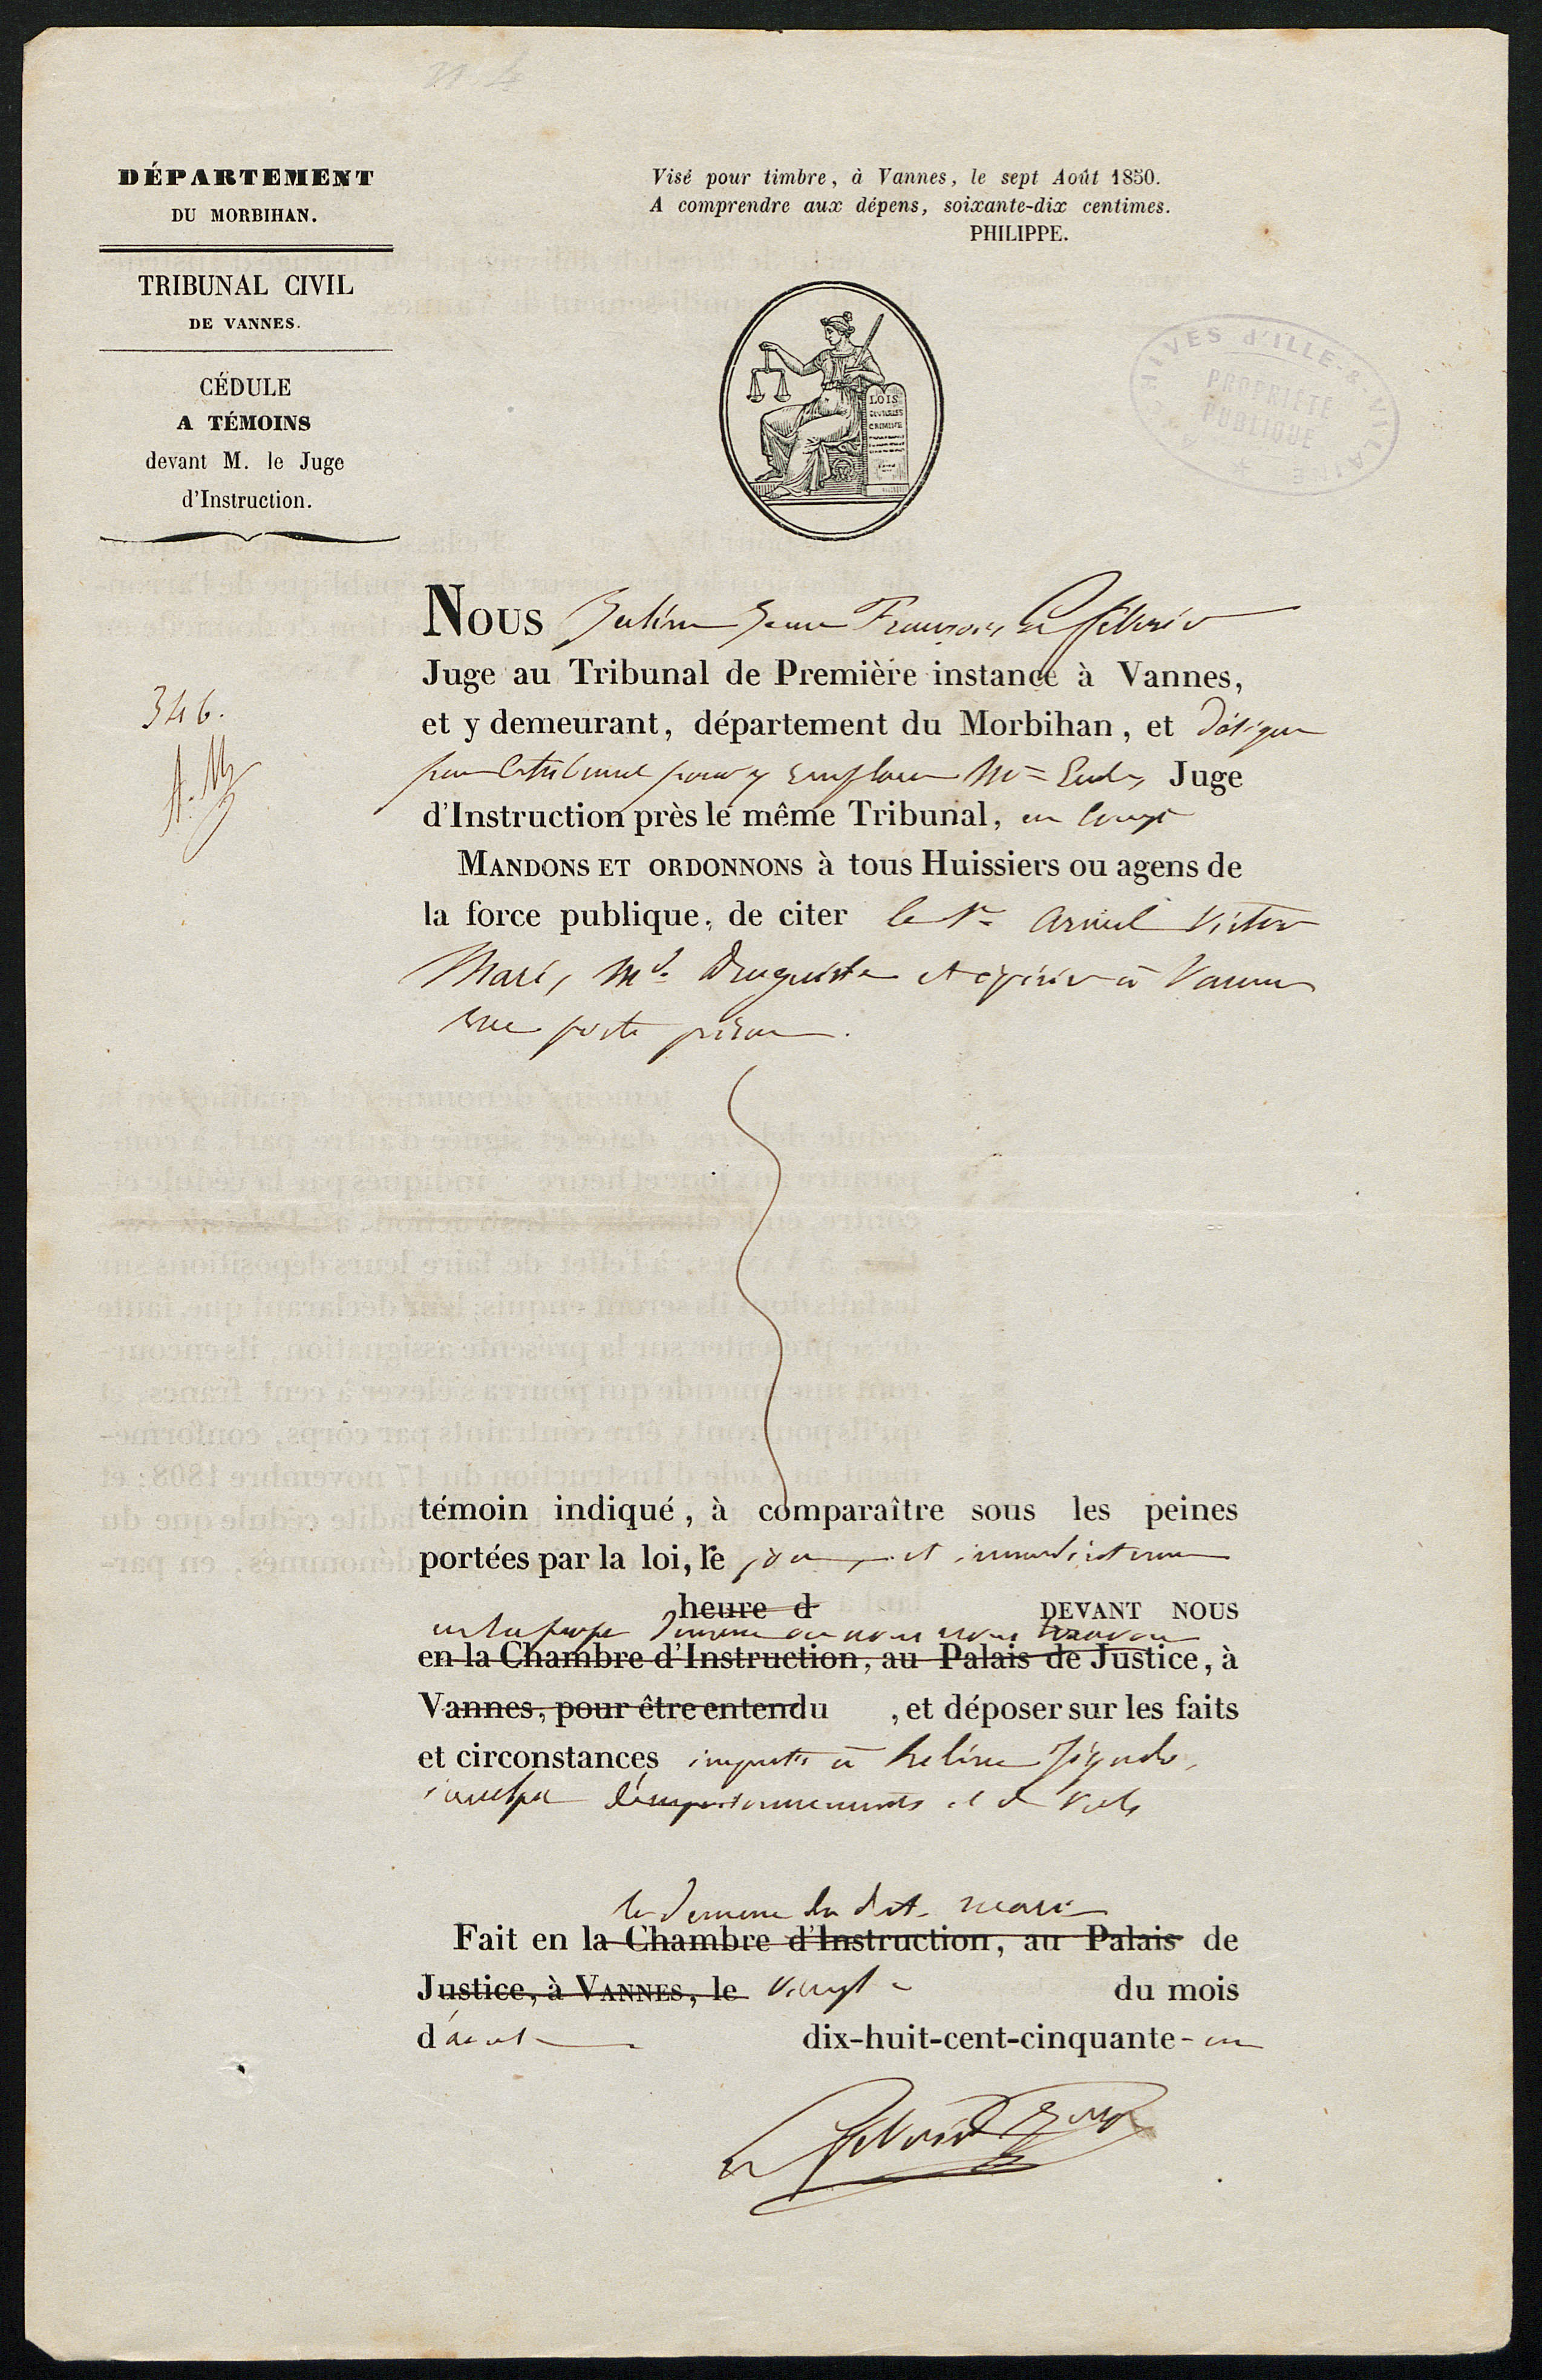 DÉPARTEMENT
DU MORBIHAN.
TRIBUNAL CIVIL
DE VANNES.
CÉDULE
A TÉMOINS
devant M. le Juge
d'Instruction.
346.
Visé pour timbre, à Vannes, le sept Août 1850.
A comprendre aux dépens, soixante-dix centimes.
PHILIPPE.
LOIS
ARCHIVES d'ILLE-&-VILAINE
PROPRIÉTÉ
PUBLIQUE
NOUS Julien Jean François
Juge au Tribunal de Première instance à Vannes,
et y demeurant, département du Morbihan, et délégué
par le tribunal pour y Juge
d'Instruction près le même Tribunal, en congé
MANDONS ET ORDONNONS à tous Huissiers ou agens de
la force publique, de citer le Sr Victor
Marie, Md. Droguiste et épicier à Vannes
rue porte prison.
témoin indiqué, à comparaître sous les peines
portées par la loi, le jour et immédiatement
heure d DEVANT NOUS
demeure où nous nous trouvons
en la Chambre d'Instruction, au Palais de Justice, à
Vannes, pour être entendu , et déposer sur les faits
et circonstances imputés à hélène Jégado,
inculpée d'empoisonnements et de Vols
demeure du dit
Fait en la Chambre d'Instruction, au Palais de
Justice, à VANNES, le Vingt du mois
d'août dix-huit-cent-cinquante-un